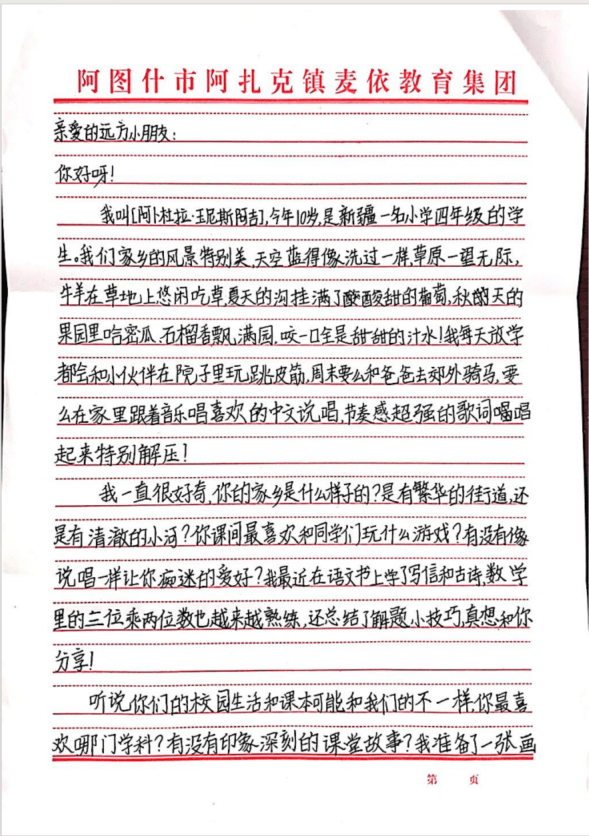 阿图什市阿扎克镇麦依教育集团
亲爱的远方小朋友：
你好呀！
我叫[阿卜杜拉·玉尼斯阿吉],今年10岁,是新疆一名小学四年级的学
生。我们家乡的风景特别美,天空蓝得像洗过一样,草原一望无际,
牛羊在草地上悠闲吃草,夏天的沟挂满了酸酸甜的葡萄,秋天的
果园里哈密瓜、石榴香飘满园,咬一口全是甜甜的汁水!我每天放学
都会和小伙伴在院子里玩跳皮筋,周末要么和爸爸去郊外骑马,要
么在家里跟着音乐唱喜欢的中文说唱,节奏感超强的歌词唱唱
起来特别解压!
我一直很好奇,你的家乡是什么样子的?是有繁华的街道,还
是有清澈的小河?你课间最喜欢和同学们玩什么游戏?有没有像
说唱一样让你痴迷的爱好?我最近在语文书上学了写信和古诗,数学
里的三位乘两位数也越来越熟练,还总结了解题小技巧,真想和你
分享!
听说你们的校园生活和课本可能和我们的不一样,你最喜
欢哪门学科?有没有印象深刻的课堂故事?我准备了一张画
第 页